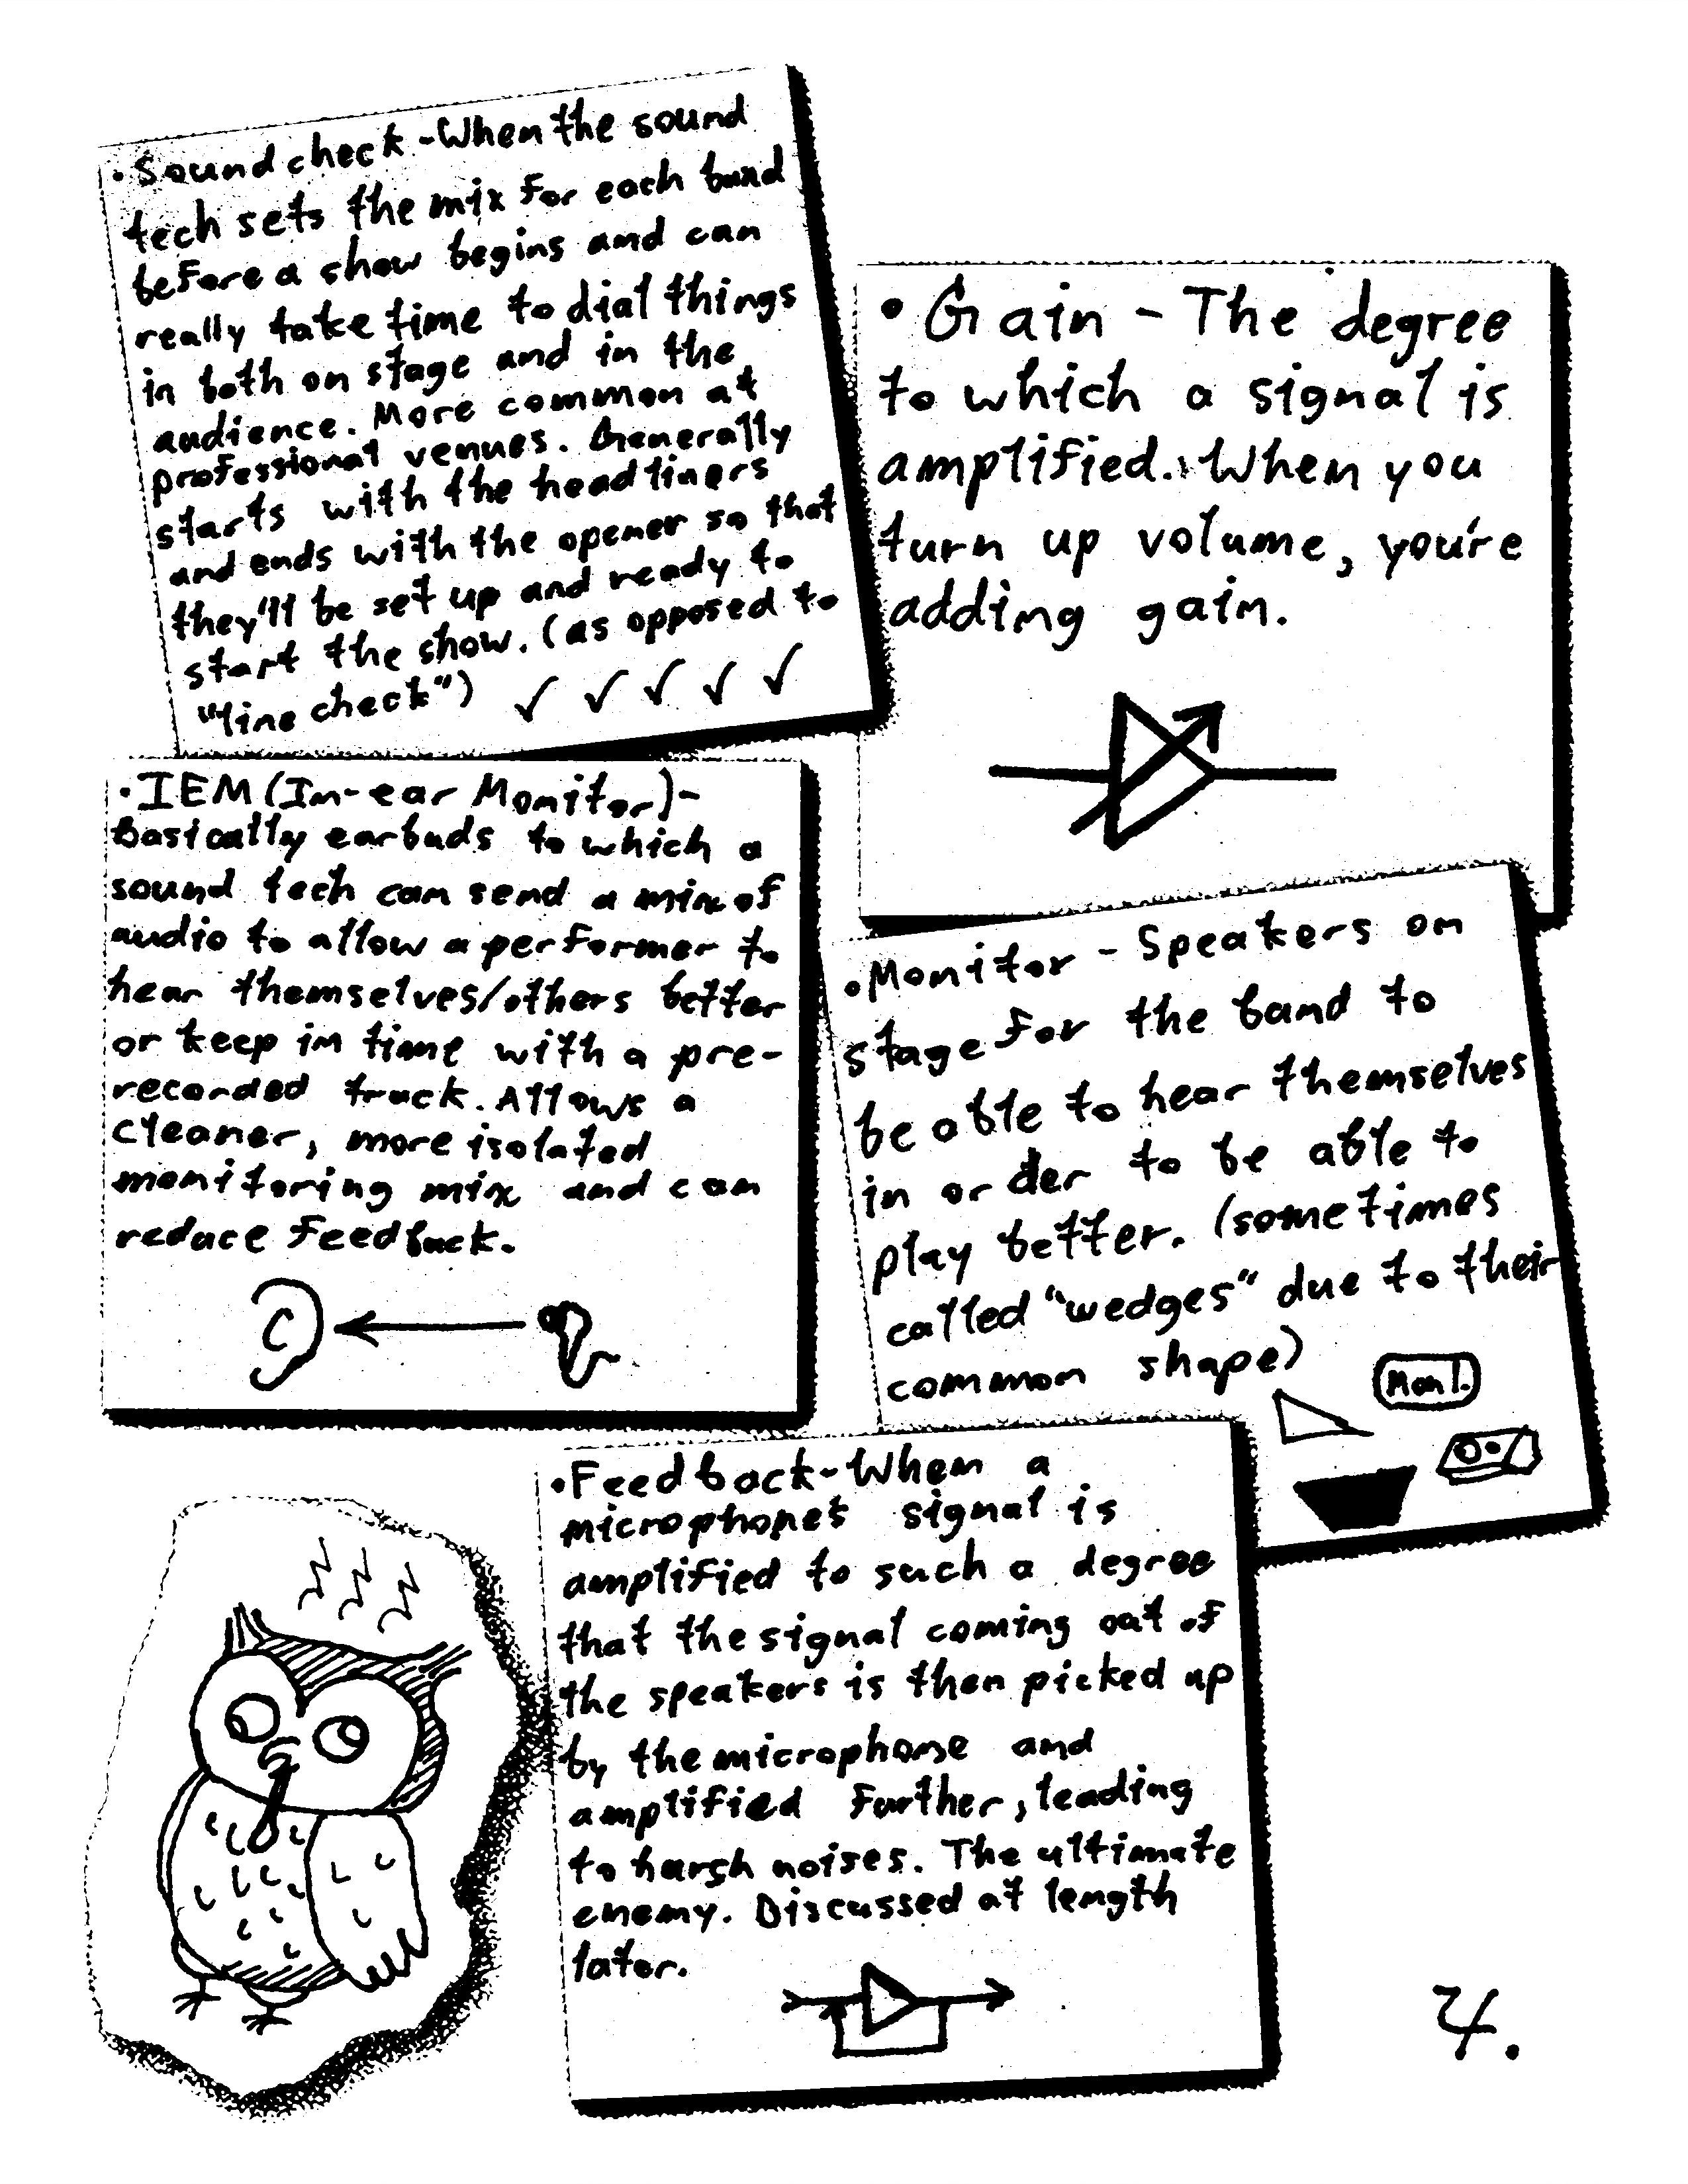 •Sound check-When the sound
tech sets the mix for each band
before a show begins and can
really take time to dial things
in both on stage and in the
audience. More common at
professional venues. Generally
starts with the headliners
and ends with the opener so that
they'll be set up and ready to
start the show. (as opposed to
"line check")
•Gain - The degree
to which a signal is
amplified. When you
turn up volume, you're
adding gain.
•IEM (In-ear Monitor)-
Basically earbuds to which a
sound tech can send a mix of
audio to allow a performer to
hear themselves/others better
or keep in time with a pre-
recorded track. Allows a
cleaner, more isolated
monitoring mix and can
reduce feedback.
•Monitor - Speakers on
stage for the band to
be able to hear themselves
in order to be able to
play better. (sometimes
called "wedges" due to their
common shape)
Mon 1.
•Feedback-When a
microphone's signal is
amplified to such a degree
that the signal coming out of
the speakers is then picked up
by the microphone and
amplified further, leading
to harsh noises. The ultimate
enemy. Discussed at length
later.
4.